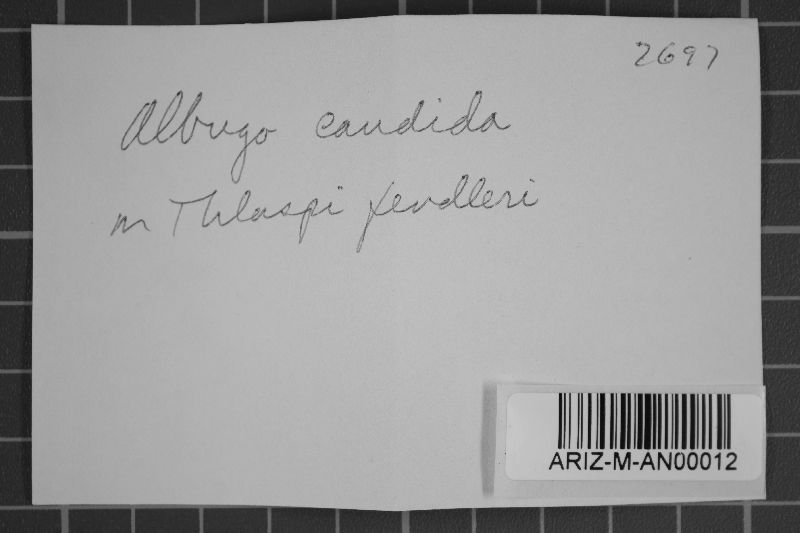 2697
Albugo candida
on Thlaspi fendleri
ARIZ-M-AN00012